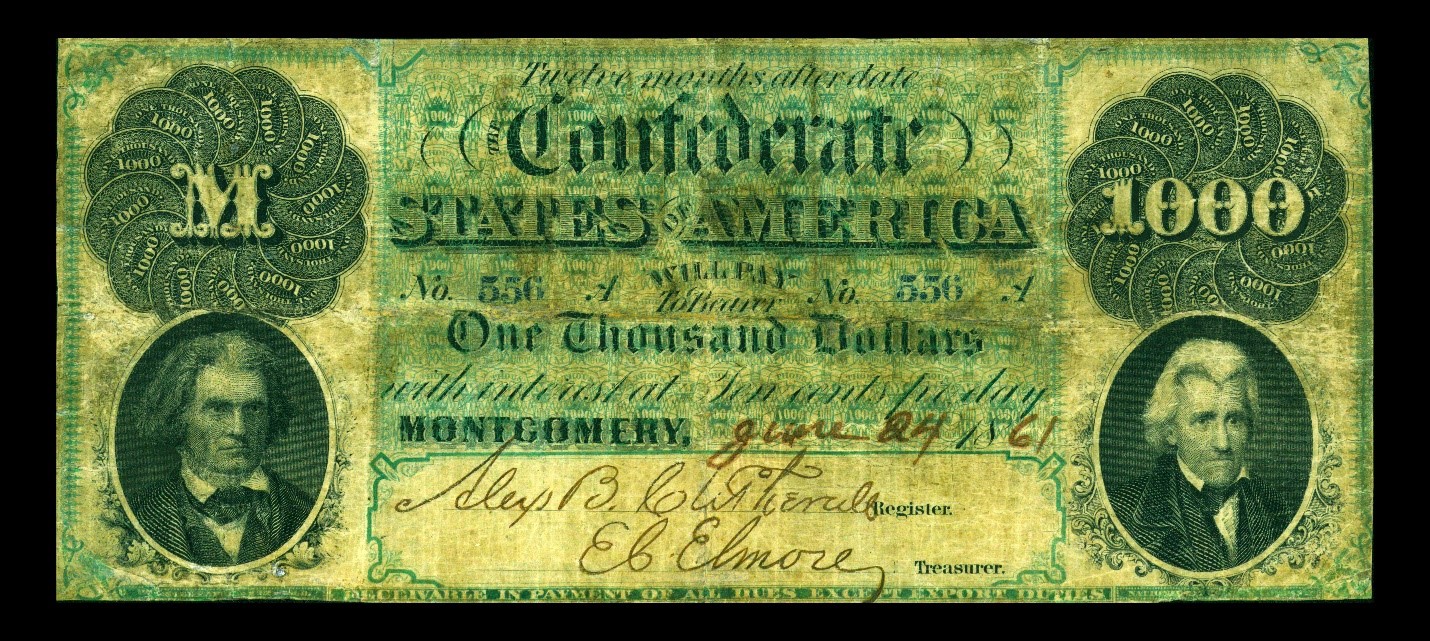 Twelve months after date
THE Confederate
STATES OF AMERICA
No. 556 A WILL PAY No. 556 A
To Bearer
One Thousand Dollars
with interest at Ten cents per day
MONTGOMERY, June 24 1861
Alex B. Clitherall Register.
E C Elmore Treasurer.
RECEIVABLE IN PAYMENT OF ALL DUES EXCEPT EXPORT DUTIES
M
1000